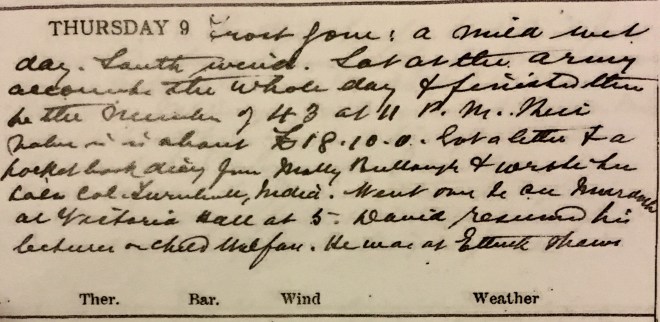 THURSDAY 9 Frost gone; a mild wet
day. South wind. Sat at the army
accounts the whole day & finished them
to the number of 43 at 11 P.M. Their
value is about £18.10.0. Got a letter & a
pocket book diary from Molly Bullough & wrote her
Col. Turnbull, India. Went over to
at Victoria Hall at 5. David resumed his
lectures on Child Welfare. He was at Ettrick Shaws
Ther. Bar. Wind Weather